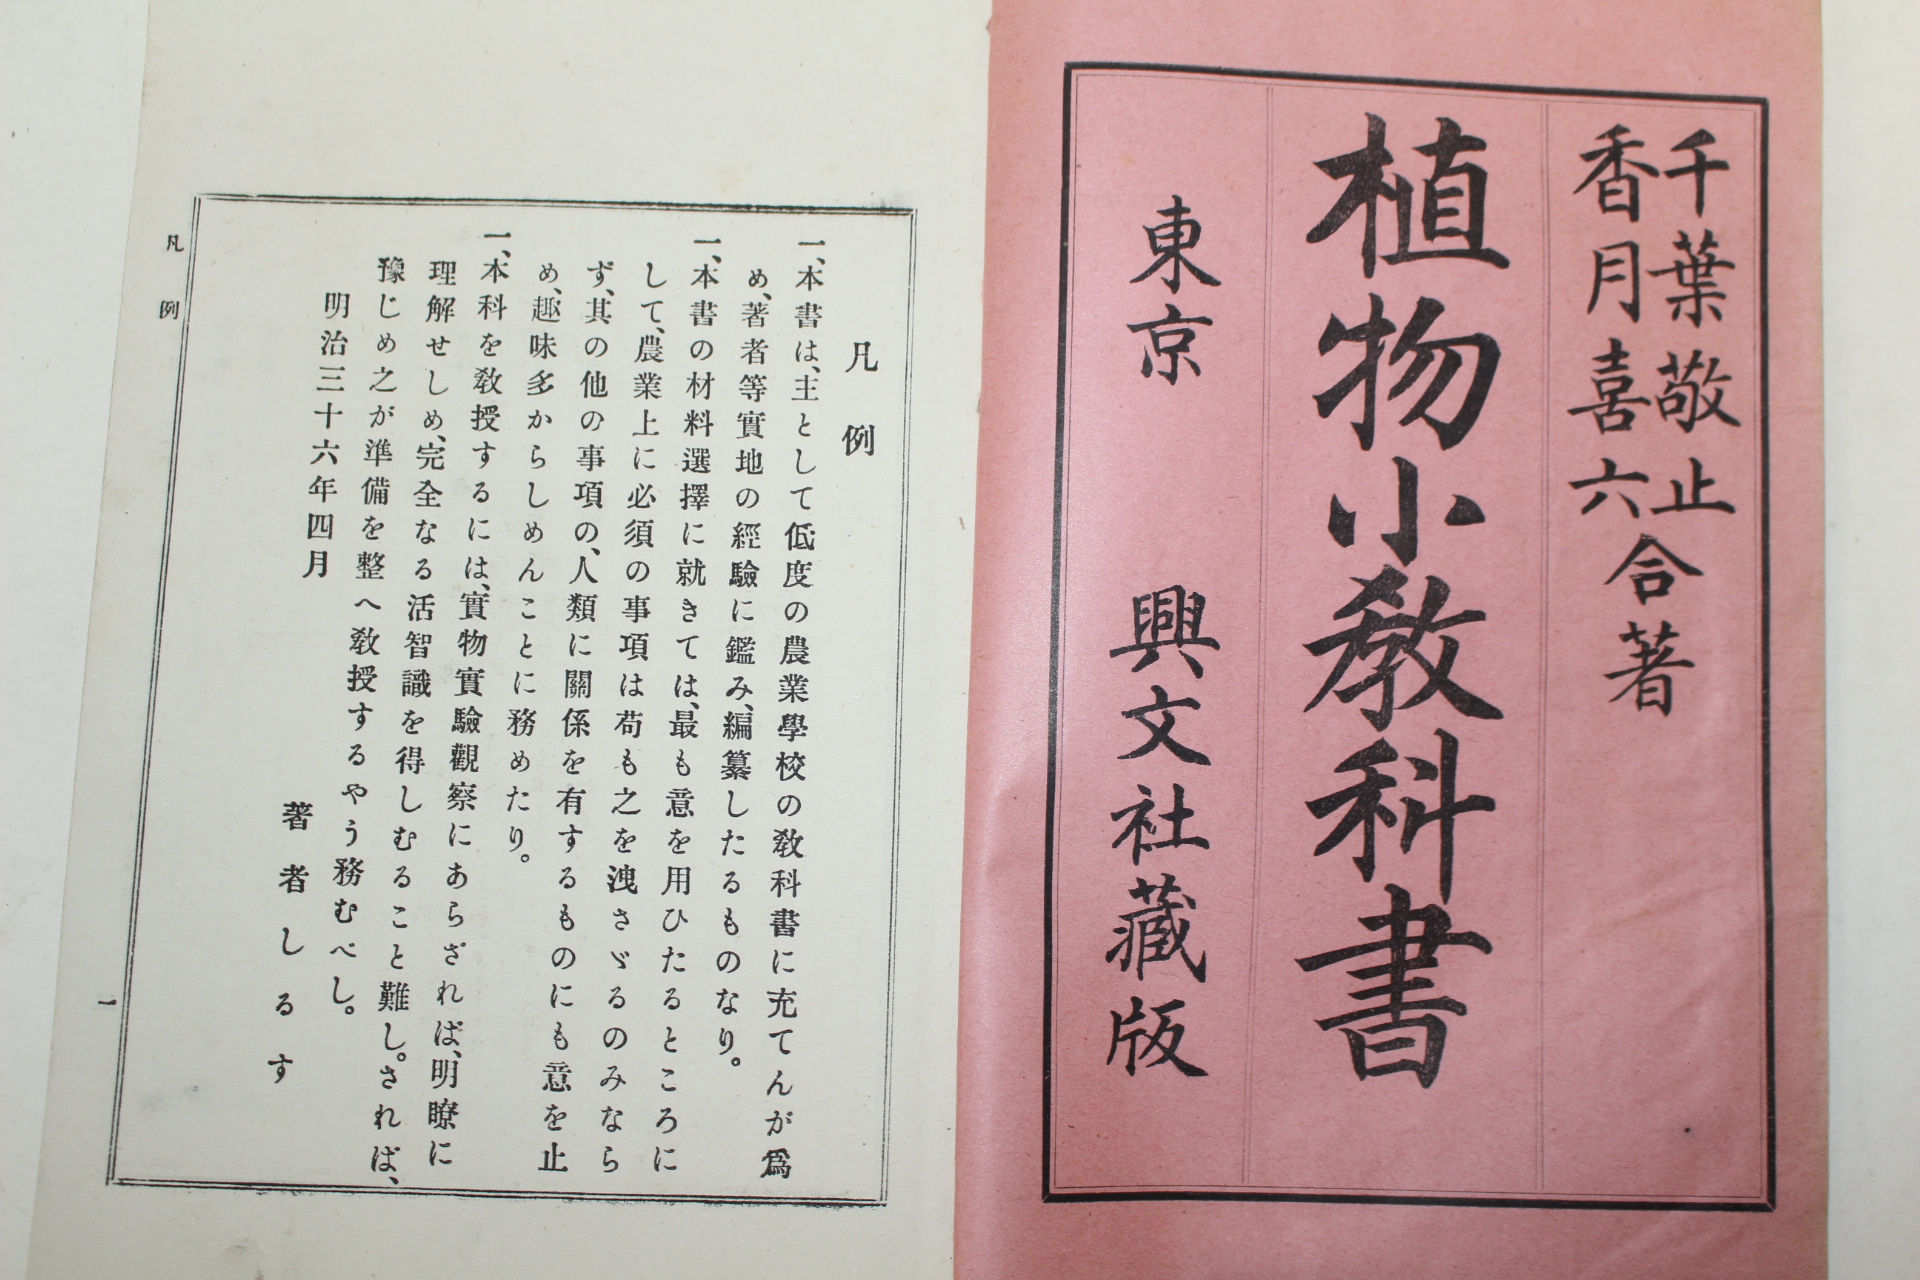 千葉敬止
香月喜六
合著
植物小敎科書
東京 興文社藏版
凡例
一、本書は、主として低度の農業學校の敎科書に充てんが爲
め、著者等實地の經驗に鑑み、編纂したるものなり。
一、本書の材料選擇に就きては、最も意を用ひたるところに
して、農業上に必須の事項は苟も之を洩さゞるのみなら
ず、其の他の事項の、人類に關係を有するものにも意を止
め、趣味多からしめんことに務めたり。
一、本科を敎授するには、實物實驗觀察にあらざれば、明瞭に
理解せしめ、完全なる活智識を得しむること難し。されば、
豫じめ之が準備を整へ敎授するやう務むべし。
明治三十六年四月
著者しるす
凡例
一